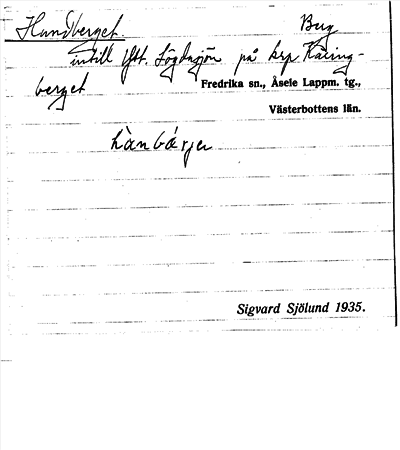 Hundberget. Berg
intill Ytt. Lögdasjön på krp Käring-
berget
Fredrika sn., Åsele Lappm. tg.,
Västerbottens län.
hànbárjer
Sigvard Sjölund 1935.